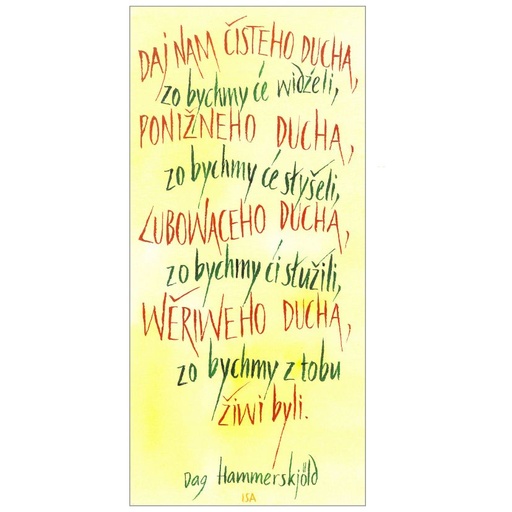 DAJ NAM ČISTEHO DUCHA,
zo bychmy će widźeli,
PONIŽNEHO DUCHA,
zo bychmy će słyšeli,
LUBOWACEHO DUCHA,
zo bychmy ći słužili,
WĚRIWEHO DUCHA,
zo bychmy z tobu
žiwi byli.
Dag Hammerskjöld
ISA